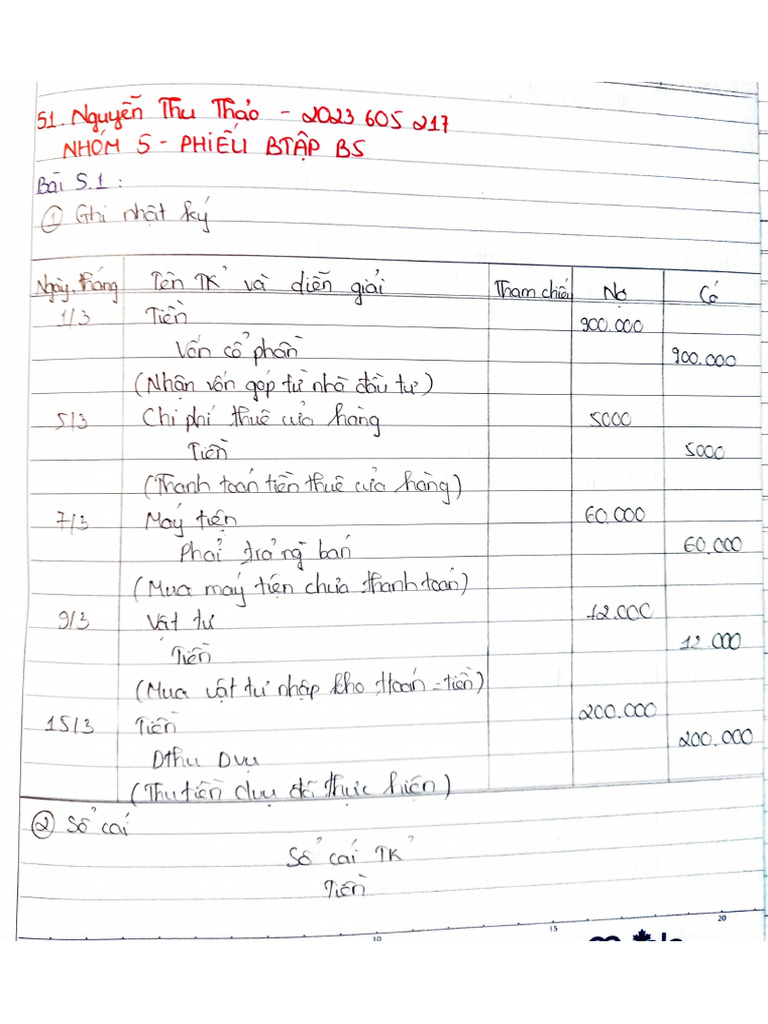 51. Nguyễn Thu Thảo - 2023 605 217
NHÓM 5 - PHIẾU BTẬP B5
Bài 5.1 :
① Ghi nhật ký
Ngày, tháng Tên TK và diễn giải Tham chiếu Nợ Có
1/3 Tiền 900.000
Vốn cổ phần 900.000
(Nhận vốn góp từ nhà đầu tư)
5/3 Chi phí thuê cửa hàng 5000
Tiền 5000
(Thanh toán tiền thuê cửa hàng)
7/3 Máy tiện 60.000
Phải trả ng bán 60.000
(Mua máy tiện chưa thanh toán)
9/3 Vật tư 12.000
Tiền 12.000
(Mua vật tư nhập kho ttoán = tiền)
15/3 Tiền 200.000
Dthu Dvụ 200.000
(Thu tiền dvụ đã thực hiện)
② Sổ cái
Sổ cái TK
Tiền
10 15 20